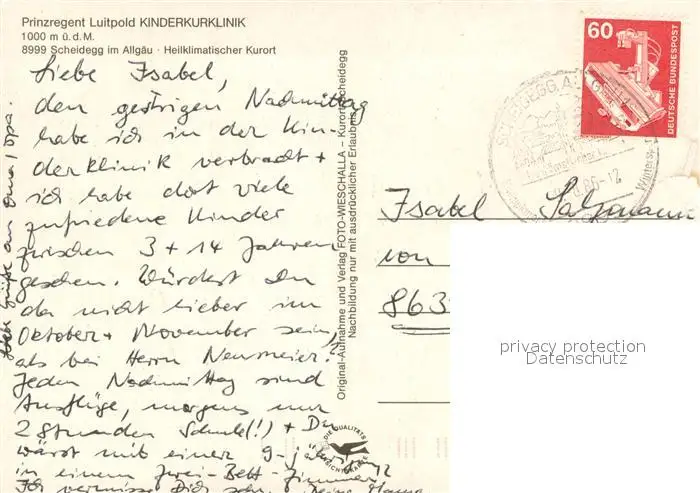 Prinzregent Luitpold KINDERKURKLINIK
1000 m ü. d. M.
8999 Scheidegg im Allgäu · Heilklimatischer Kurort
Liebe Isabel,
den gestrigen Nachmittag
habe ich in der Kin-
derklinik verbracht +
ich habe dort viele
zufriedene Kinder
zwischen 3 + 14 Jahren
gesehen. Würdest Du
da nicht lieber im
Oktober + November sein,
als bei Herrn Neumeier?
Jeden Nachmittag sind
Ausflüge, morgens nur
2 Stunden Schule(!) + Du
wärst mit einer 9-
in einem Zwei-Bett-Zimmer
Ich vermisse Dich sehr. Deine Mama
Grüße an Oma / Opa.
Original-Aufnahme und Verlag FOTO-WIESCHALLA – Kurort Scheidegg
Nachbildung nur mit ausdrücklicher Erlaubnis
DIE QUALITÄTS
ANSICHTSKARTE
60
DEUTSCHE BUNDESPOST
SCHEIDEGG, ALLGÄU
-12
Winters
Isabel Salzmann
von
863
privacy protection
Datenschutz